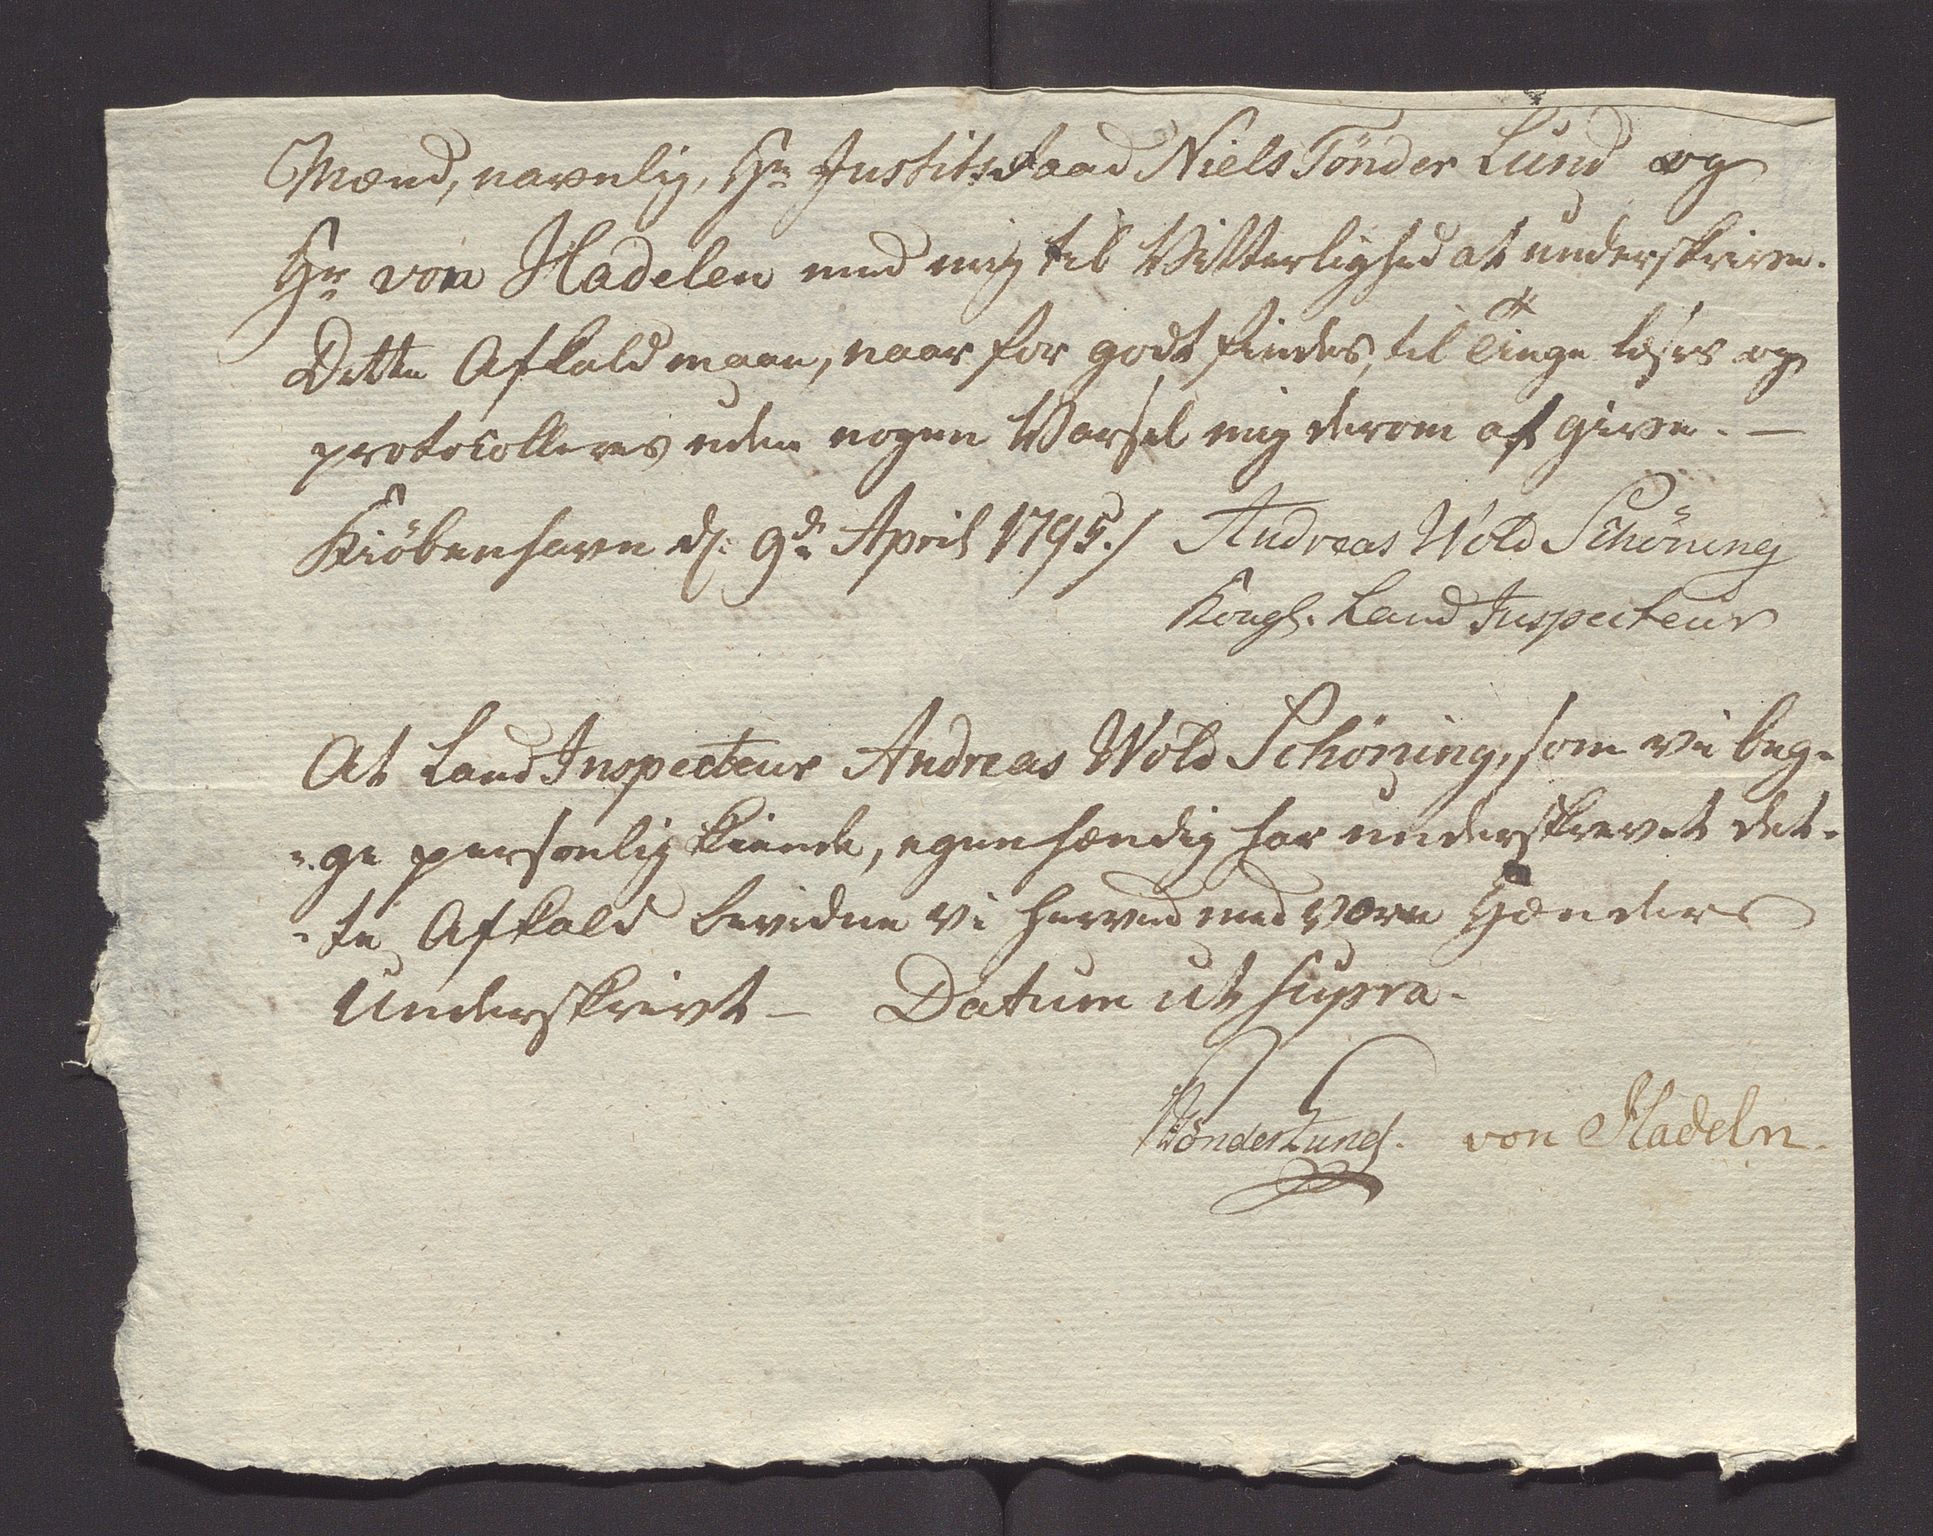 Mænd, navnlig, Hr Justitsraad Niels Tönder Lund og
Hr von Hadelen med mig til Vitterlighed at underskrive.
Dette Afkald maae, naar for godt findes, til Tinge læses og
protocolleres uden nogen Varsel mig derom at give. —
Kiöbenhavn d: 9de April 1795./ Andreas Wold Schöning
Kongl. Land Inspecteur
At Land Inspecteur Andreas Wold Schöning, som vi beg-
-ge personlig kiende, egenhændig har underskrevet det-
-te Afkald bevidne vi herved med vore Hænders
Underskrivt — Datum ut supra.
NTönderLund. von Hadeln.